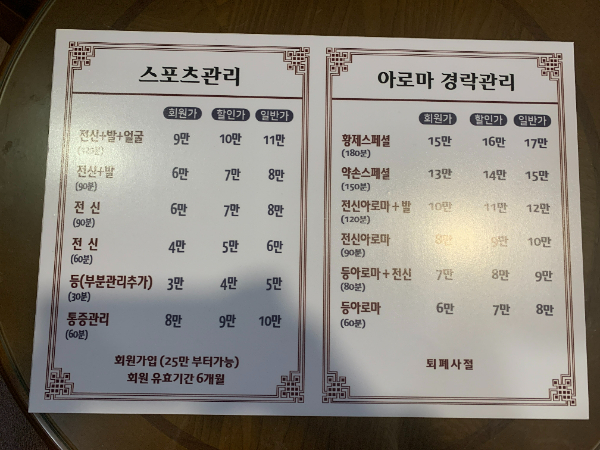 스포츠관리
회원가 할인가 일반가
전신+발+얼굴 9만 10만 11만
(120분)
전신+발 6만 7만 8만
(90분)
전 신 6만 7만 8만
(90분)
전 신 4만 5만 6만
(60분)
등(부분관리추가) 3만 4만 5만
(30분)
통증관리 8만 9만 10만
(60분)
회원가입 (25만 부터가능)
회원 유효기간 6개월
아로마 경락관리
회원가 할인가 일반가
황제스페셜 15만 16만 17만
(180분)
약손스페셜 13만 14만 15만
(150분)
전신아로마+발 10만 11만 12만
(120분)
전신아로마 8만 9만 10만
(90분)
등아로마+전신 7만 8만 9만
(80분)
등아로마 6만 7만 8만
(60분)
퇴폐사절